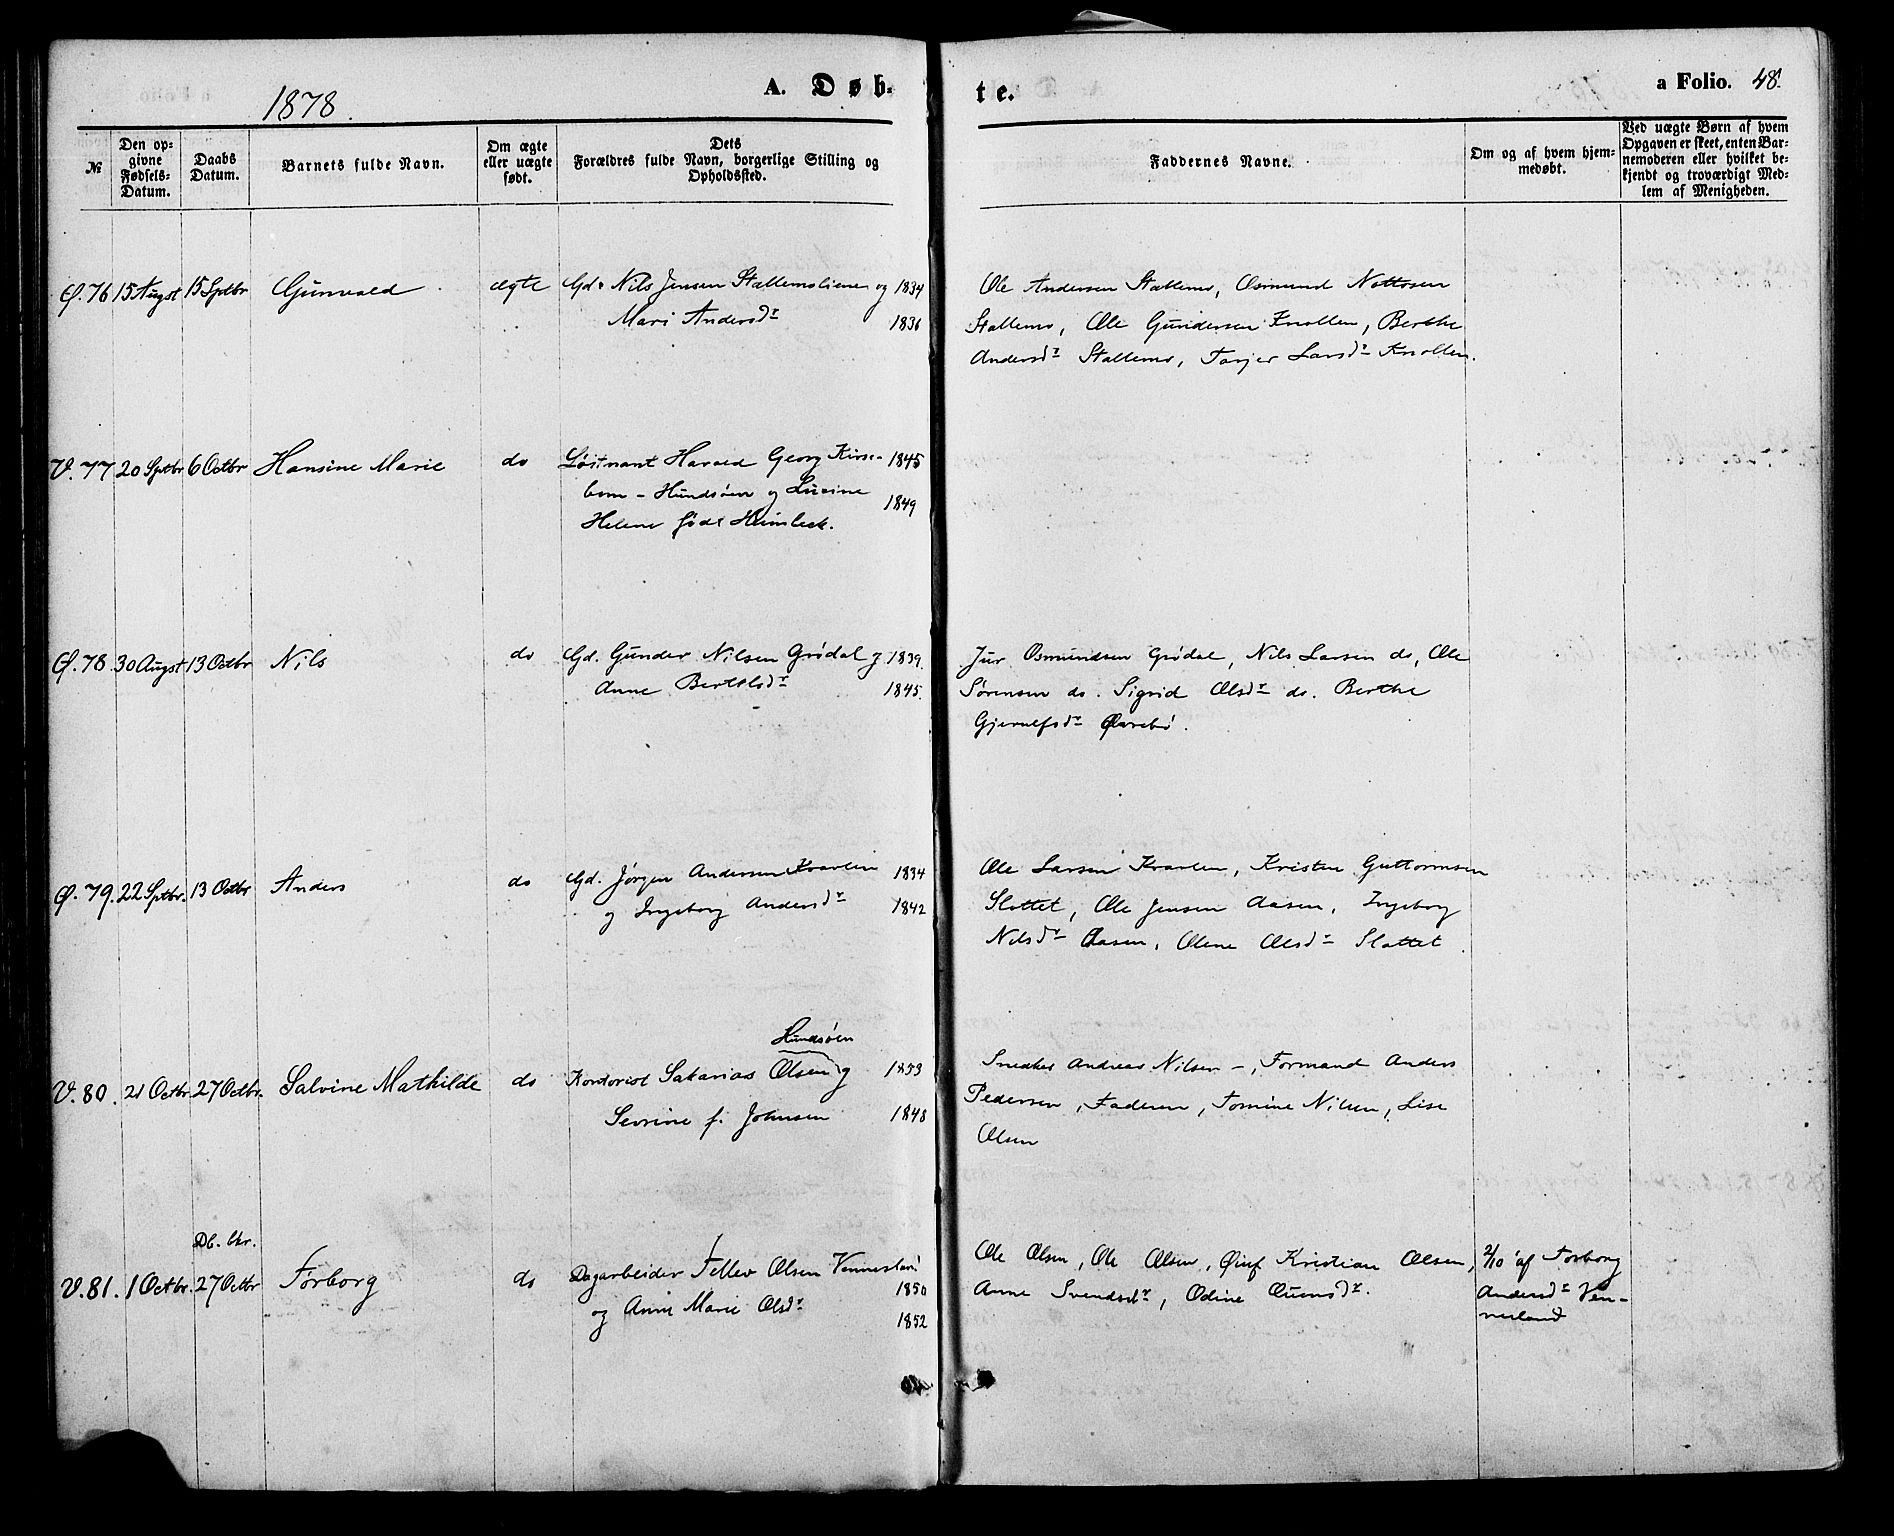 1878.
A. Døb-
te.
a Folio. 48.
№
Den op-
givne
Fødsels-
Datum.
Daabs
Datum.
Barnets fulde Navn.
Om ægte
eller uægte
født.
Dets
Forældres fulde Navn, borgerlige Stilling og
Opholdssted.
Faddernes Navne.
Om og af hvem hjem-
medøbt.
Ved uægte Børn af hvem
Opgaven er skeet, enten Bar-
nemoderen eller hvilket be-
kjendt og troværdigt Med-
lem af Menigheden.
Ø. 76 15 Augst 15 Sptbr Gunvald ægte Gd. Nils Jensen Stallemoliene og 1834
Mari Andersdr 1836
Ole Andersen Stallemo, Osmund Nottosen
Stallemo, Ole Gundersen Knollen, Berthe
Andersdr Stallemo, Tarjer Larsdr Knollen.
V. 77 20 Sptbr 6 Octbr Hansine Marie do Løitnant Harald Georg Kirse- 1845
bom - Hundsøen og Lucine 1849
Helene født Heimbeck.
Ø. 78. 30 Augst 13 Octbr Nils do Gd. Gunder Nilsen Grødal og 1839.
Anne Bertelsdr 1845.
Jur Osmundsen Grødal, Nils Larsen do, Ole
Sørensen do. Sigrid Olsdr do. Berthe
Gjerulfsdr Øvrebø.
Ø. 79. 22 Sptbr. 13 Octbr Anders do Gd. Jørgen Andersen Kvarlein 1834
og Ingeborg Andersdr 1842
Ole Larsen Kvarlein, Kristen Guttormsen
Slottet, Ole Jensen Aasen, Ingeborg
Nilsdr Aasen, Olene Olsdr Slottet.
Hundsøen
V. 80. 21 Octbr. 27 Octbr. Salvine Mathilde do Kontorist Sakarias Olsen og 1853
Sevrine f. Johnsen 1848
Snedker Andreas Nilsen -, Formand Anders
Pedersen, Faderen, Tomine Nilsen, Lise
Olsen
Db. Ckr.
V. 81. 1 Octbr. 27 Octbr Tørborg do Dagarbeider Tellev Olsen Venneslan 1850
og Anne Marie Olsdr 1852
Ole Olsen, Ole Olsen, Kristian Olsen,
Anne Svendsdr, Odine
2/10 af Torborg
Andersdr Ven-
nesland